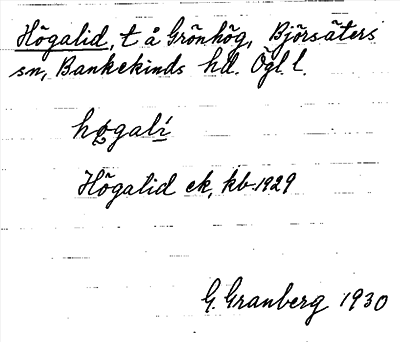 Högalid, t å Grönhög, Björsäters
sn, Bankekinds hd. Ögl. l.
hǫgalí
Högalid ek, kb 1929
G. Granberg 1930